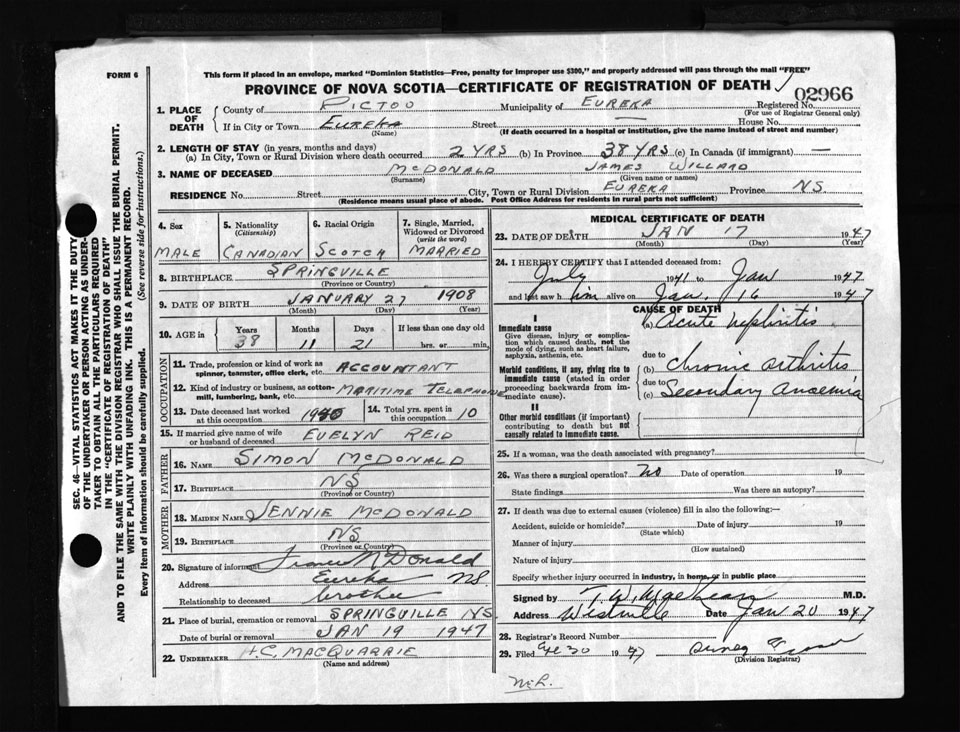 FORM 6
This form if placed in an envelope, marked "Dominion Statistics—Free, penalty for improper use $300," and properly addressed will pass through the mail "FREE"
PROVINCE OF NOVA SCOTIA—CERTIFICATE OF REGISTRATION OF DEATH
02966
1. PLACE OF DEATH
County of PICTOU Municipality of EUREKA Registered No.
(For use of Registrar General only)
If in City or Town EUREKA Street House No.
(Name) (If death occurred in a hospital or institution, give the name instead of street and number)
2. LENGTH OF STAY (in years, months and days)
(a) In City, Town or Rural Division where death occurred 2 YRS (b) In Province 38 YRS (c) In Canada (if immigrant) —
3. NAME OF DECEASED McDONALD JAMES WILLARD
(Surname) (Given name or names)
RESIDENCE No. Street City, Town or Rural Division EUREKA Province N.S.
(Residence means usual place of abode. Post Office Address for residents in rural parts not sufficient)
4. Sex 5. Nationality (Citizenship) 6. Racial Origin 7. Single, Married, Widowed or Divorced (write the word)
MALE CANADIAN SCOTCH MARRIED
8. BIRTHPLACE SPRINGVILLE
(Province or Country)
9. DATE OF BIRTH JANUARY 27 1908
(Month) (Day) (Year)
10. AGE in Years Months Days If less than one day old
38 11 21 hrs. or min.
OCCUPATION
11. Trade, profession or kind of work as spinner, teamster, office clerk, etc. ACCOUNTANT
12. Kind of industry or business, as cotton-mill, lumbering, bank, etc. MARITIME TELEPHONE
13. Date deceased last worked at this occupation 1940 14. Total yrs. spent in this occupation 10
15. If married give name of wife or husband of deceased EVELYN REID
FATHER
16. NAME SIMON McDONALD
17. BIRTHPLACE NS
(Province or Country)
MOTHER
18. MAIDEN NAME JENNIE McDONALD
19. BIRTHPLACE NS
(Province or Country)
20. Signature of informant McDonald
Address Eureka NS.
Relationship to deceased brother
21. Place of burial, cremation or removal SPRINGVILLE NS
Date of burial or removal JAN 19 1947
22. UNDERTAKER H.C. MACQUARRIE
(Name and address)
MEDICAL CERTIFICATE OF DEATH
23. DATE OF DEATH JAN 17 1947
(Month) (Day) (Year)
24. I HEREBY CERTIFY that I attended deceased from:
July 1941 to Jan 1947
and last saw him alive on Jan. 16 1947
CAUSE OF DEATH
I
Immediate cause
Give disease, injury or complication which caused death, not the mode of dying, such as heart failure, asphyxia, asthenia, etc.
(a) Acute nephritis
due to
Morbid conditions, if any, giving rise to immediate cause (stated in order proceeding backwards from immediate cause).
(b) Chronic arthritis
due to
(c) Secondary Anaemia
II
Other morbid conditions (if important) contributing to death but not causally related to immediate cause.
25. If a woman, was the death associated with pregnancy?
26. Was there a surgical operation? no Date of operation 19
State findings Was there an autopsy?
27. If death was due to external causes (violence) fill in also the following:—
Accident, suicide or homicide? Date of injury 19
(State which)
Manner of injury
(How sustained)
Nature of injury
Specify whether injury occurred in industry, in home, or in public place
Signed by M.D.
Address Westville Date Jan 20 1947
28. Registrar's Record Number
29. Filed 30 1947
(Division Registrar)
SEC. 46—VITAL STATISTICS ACT MAKES IT THE DUTY
OF THE UNDERTAKER OR PERSON ACTING AS UNDER-
TAKER TO OBTAIN ALL THE PARTICULARS REQUIRED
IN THE "CERTIFICATE OF REGISTRATION OF DEATH"
AND TO FILE THE SAME WITH THE DIVISION REGISTRAR WHO SHALL ISSUE THE BURIAL PERMIT.
WRITE PLAINLY WITH UNFADING INK. THIS IS A PERMANENT RECORD.
Every item of information should be carefully supplied. (See reverse side for instructions.)